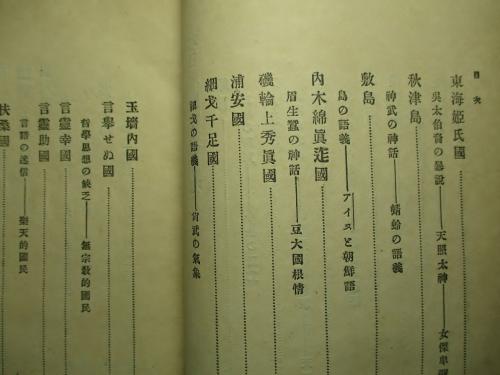 目次
東海姬氏國
吳太伯裔の暴說――天照太神――女傑卑彌
秋津島
神武の神話――蜻蛉の語義
敷島
島の語義――アイヌと朝鮮語
內木綿眞迮國
眉生蠶の神話――豆大國根情
磯輪上秀眞國
浦安國
細戈千足國
細戈の語義――尙武の氣象
玉墻內國
言擧せぬ國
哲學思想の缺乏――無宗敎的國民
言靈幸國
言靈助國
言語の迷信――樂天的國民
扶桑國